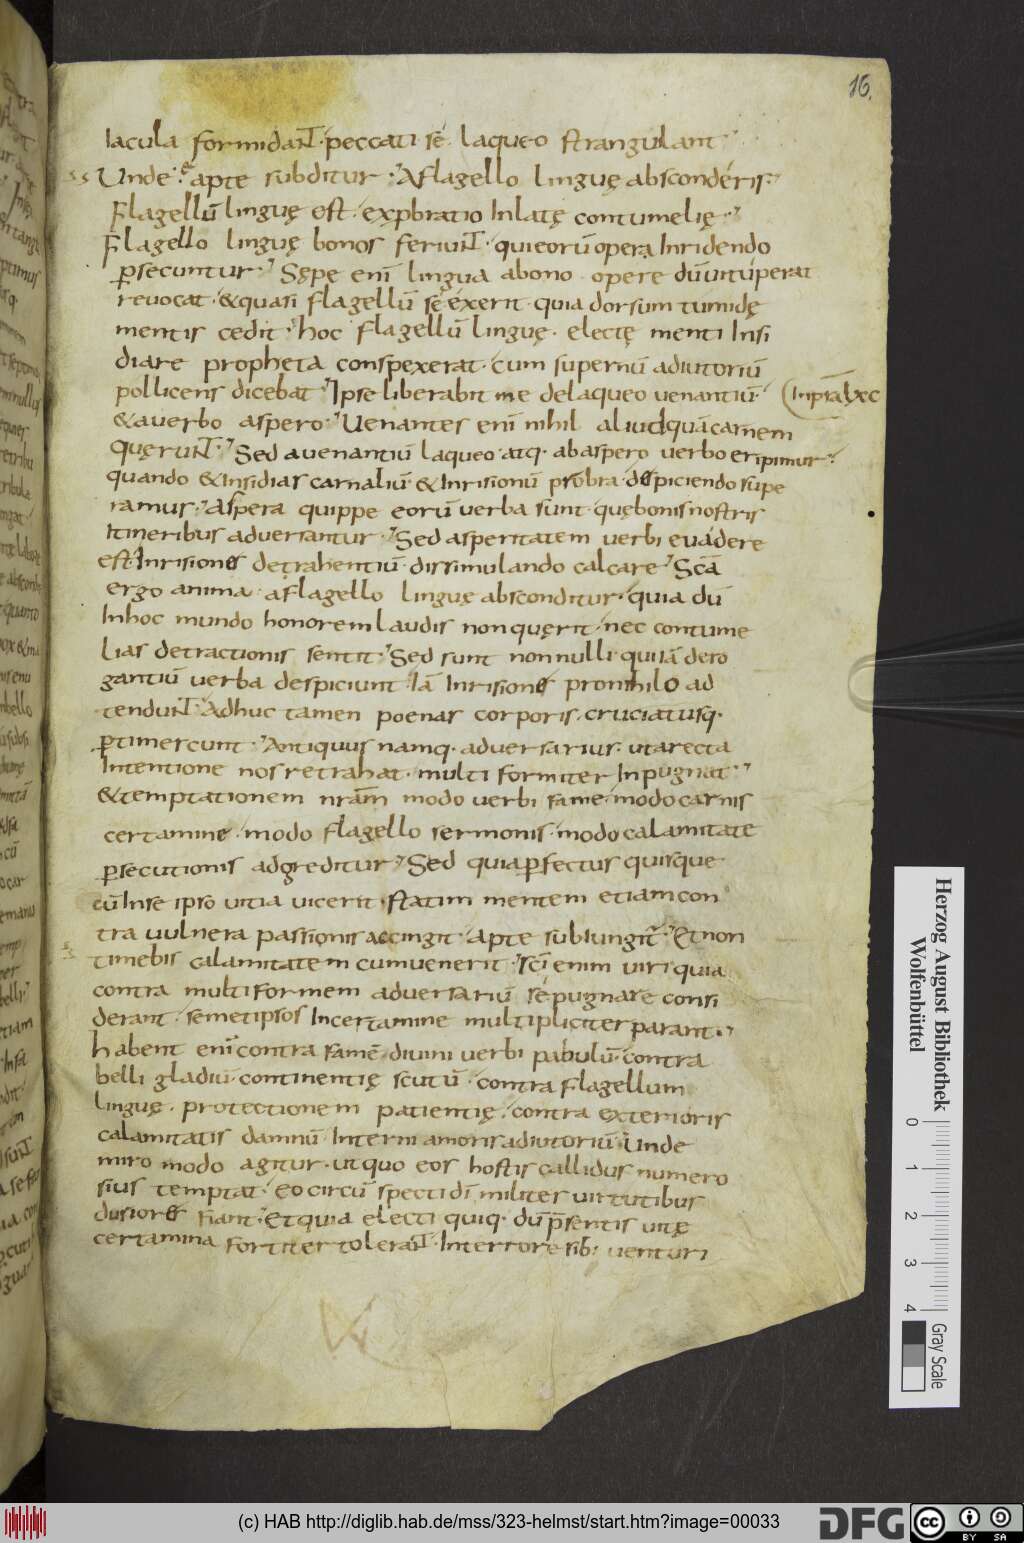 16.
Iacula formidaNT · peccati se laqueo strangulant
Unde apte subditur · A flagello linguę absconderis
Flagellū linguę est · exprobratio Inlatę contumelię
Flagello linguę bonos feriuNT · qui eorū opera Inridendo
persecuntur · Sępe enī lingua a bono opere dū vituperat
revocat · & quasi flagellū se exerit · quia dorsum tumidę
mentis cedit · hoc flagellū linguę · electę menti Insi
diare propheta conspexerat · cum supernū adiutoriū
pollicens dicebat · Ipse liberabit me de laqueo uenantiū · Inpsal xc
& a uerbo aspero · Uenantes enī nihil aliud quā carnem
quęruNT · Sed a uenantiū laqueo atq · ab aspero uerbo eripimur
quando & Insidias carnaliū · & Inrisionū probra despiciendo supe
ramus · Aspera quippe eorū uerba sunt · quę bonis nostris
Itineribus aduersantur · Sed asperitatem uerbi euadere
est · Inrisiones detrahentiū · dissimulando calcare · Scā
ergo anima · a flagello linguę absconditur · quia dū
Inhoc mundo honorem laudis non quęrit · nec contume
lias detractionis sentit · Sed sunt nonnulli · qui iā dero
gantiū uerba despiciunt · Iā Inrisiones pro nihilo ad
tenduNT · Adhuc tamen poenas corporis · cruciatusq ·
pertimescunt · Antiquus namq · aduersarius · ut a recta
Intentione nos retrahat · multiformiter Inpugnat
& temptationem nrām modo uerbi fame · modo carnis
certamine · modo flagello sermonis · modo calamitate
persecutionis adgreditur · Sed quia perfectus quisque
cū Inse ipso uitia uicerit · statim mentem etiam con
tra uulnera passionis accingit · apte subIungit · Et non
timebis calamitatem cum uenerit · scī enim uiri quia
contra multiformem aduersariū se pugnare consi
derant · semetipsos Incertamine multipliciter parant ·
habent enī contra famē · diuini uerbi pabulū · contra
belli gladiū · continentię scutū · contra flagellum
linguę · protectionem patientię · contra exterioris
calamitatis damnū · Interni amoris adiutorium · Unde
miro modo agitur · ut quo eos hostis callidus numero
sius temptat · eo circūspecti dī milites uirtutibus
ditiores fiant · Et quia electi quiq · dū presentis uitę
certamina fortiter toleraNT · Interrore sibi uenturi
Herzog August Bibliothek
Wolfenbüttel
0 1 2 3 4
Gray Scale
(c) HAB http://diglib.hab.de/mss/323-helmst/start.htm?image=00033
DFG
cc BY SA